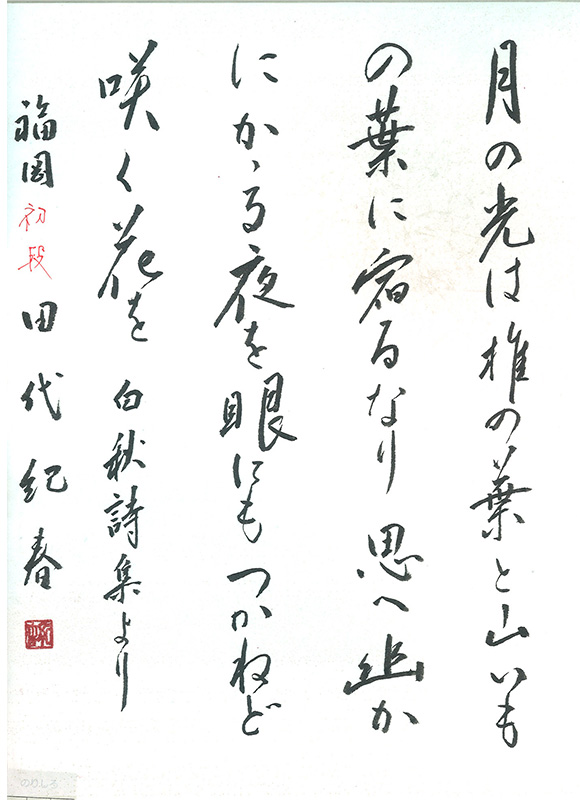 月の光は椎の葉と山いも
の葉に宿るなり 思へ幽か
にかゝる夜を眼にもつかねど
咲く花を 白秋詩集より
福岡 初段 田代紀春
のりしろ